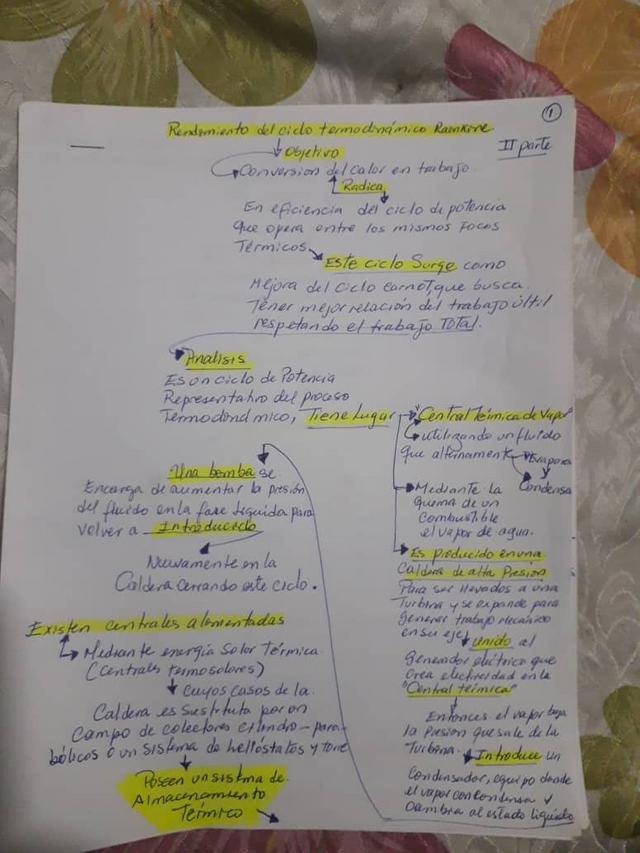 1
Rendimiento del ciclo termodinámico Rainkine
II parte
Objetivo
Conversion del calor en trabajo
Radica
En eficiencia del ciclo de potencia
que opera entre los mismos Focos
Térmicos
Este ciclo Surge como
Mejora del ciclo carnot, que busca
Tener mejor relación del trabajo últil
respetando el trabajo Total.
Analisis
Es on ciclo de Potencia
Representativo del proceso
Termodinámico, Tiene Lugar
Central Teímica de Vapor
utilizando un fluido
que alternamente Evapora
Condensa
Mediante la
quema de un
combustible
el vapor de agua.
Es producido en una
Caldera de alta Presion
Para ser llevados a una
Turbina y se expande para
generar trabajo mecánico
en su eje Unido al
Generador eléctrico que
crea electricidad en la
"Central teímica"
Entonces el vapor baja
la Presion que sale de la
Turbina. Introduce un
Condensador, equipo donde
el vapor con condensa y
Cambia al estado liquido
Una bomba se
Encarga de aumentar la presión
del fluido en la fase liquida para
volver a Introducido
Nuevamente en la
Caldera cerrando este ciclo.
Existen centrales alomentadas
Mediante energía Solar Térmica
(Centrales termosolares)
cuyos casos de la
Caldera es sustituta por on
Campo de colectores cilindro-para-
bólicos o un sistema de helióstatos y torre
Poseen un sistma de
Almacenamiento
Térmico